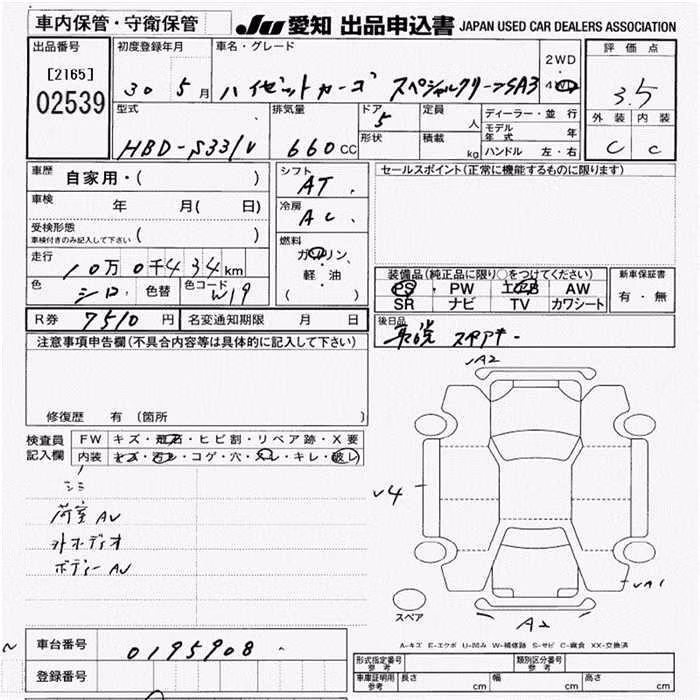 車内保管・守衛保管
JU 愛知 出品申込書 JAPAN USED CAR DEALERS ASSOCIATION
出品番号 初度登録年月 車名・グレード 2WD 評価点
[2165]
02539 30 5月 ハイゼットカーゴ スペシャルクリーンSA3 4WD 3.5
型式 排気量 ドア 定員 ディーラー・並行 外装 内装
HBD-S331V 660CC 5 人 モデル年式 年 C C
形状 積載 kg ハンドル 左・右
車歴 自家用・( ) シフト セールスポイント(正常に機能するものに限ります)
AT
車検 年 月( 日) 冷房
AC
受検形態
車検付きのみ記入して下さい ( ) 燃料
ガソリン
軽・油
( )
走行 10万0千434km 装備品(純正品に限り○をつけてください) 新車保証書
色 シロ 色替 色コード W19 PS PW エアB AW 有・無
SR ナビ TV カワシート
R券 7510円 名変通知期限 月 日 後日品
取説 スペアキー
注意事項申告欄(不具合内容等は具体的に記入して下さい)
A2
修復歴 有(箇所 )
検査員 FW キズ・飛石・ヒビ割・リペア跡・X要
記入欄 内装 キズ・汚レ・コゲ・穴・スレ・キレ・破レ
シミ
v4
荷室AU
外オーディオ
ボディーAU
UA1
スペア
A2
A-キズ E-エクボ U-凹み W-補修跡 S-サビ C-腐食 XX-交換済
車台番号 0195908
形式指定番号 参考 類別区分番号 参考
登録番号 車庫証明用 参考 長さ cm 幅 cm 高さ cm